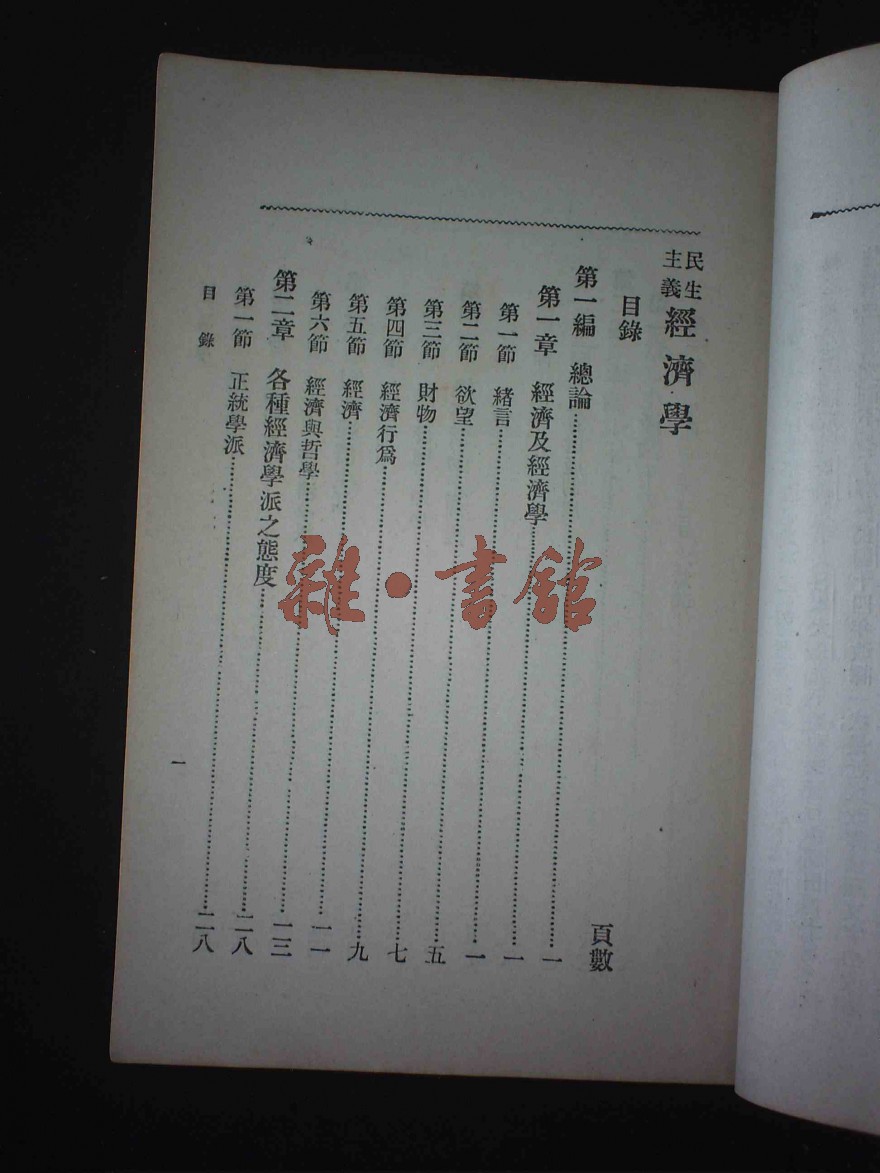 民生主義經濟學
目錄 頁數
第一編 總論……一
第一章 經濟及經濟學……一
第一節 緒言……一
第二節 欲望……五
第三節 財物……七
第四節 經濟行爲……九
第五節 經濟……一一
第六節 經濟與哲學……一三
第二章 各種經濟學派之態度……二八
第一節 正統學派……二八
目錄 一
雜·書館